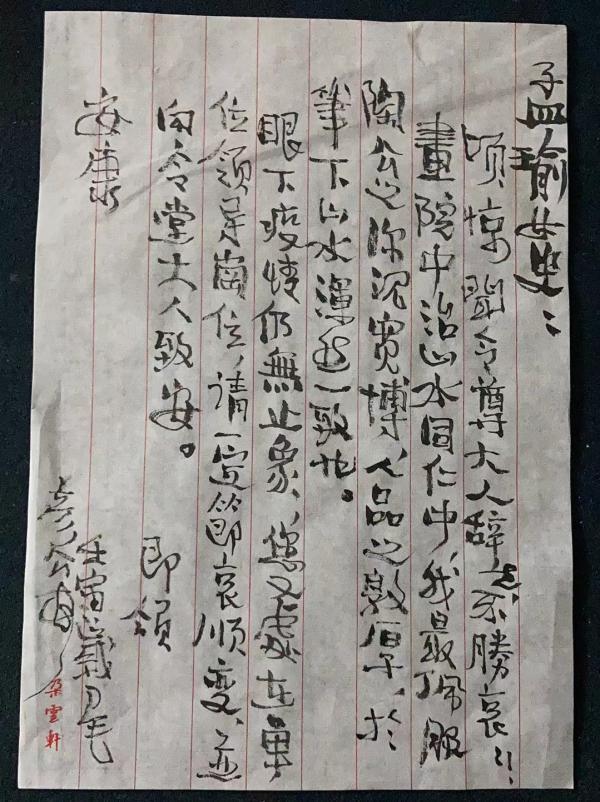 孟瑜女史：
顷惊闻令尊大人辞世，不勝哀！！
畫院中治山水同仁中，我最珮服
陶公之深沉寬博，人品之敦厚，於
筆下山水渾然一致也。
眼下疫情仍無止象，您又處在單
位领导崗位，请一定節哀顺變，並
向令堂大人致安。
即颂
安康
壬寅
朵雲軒